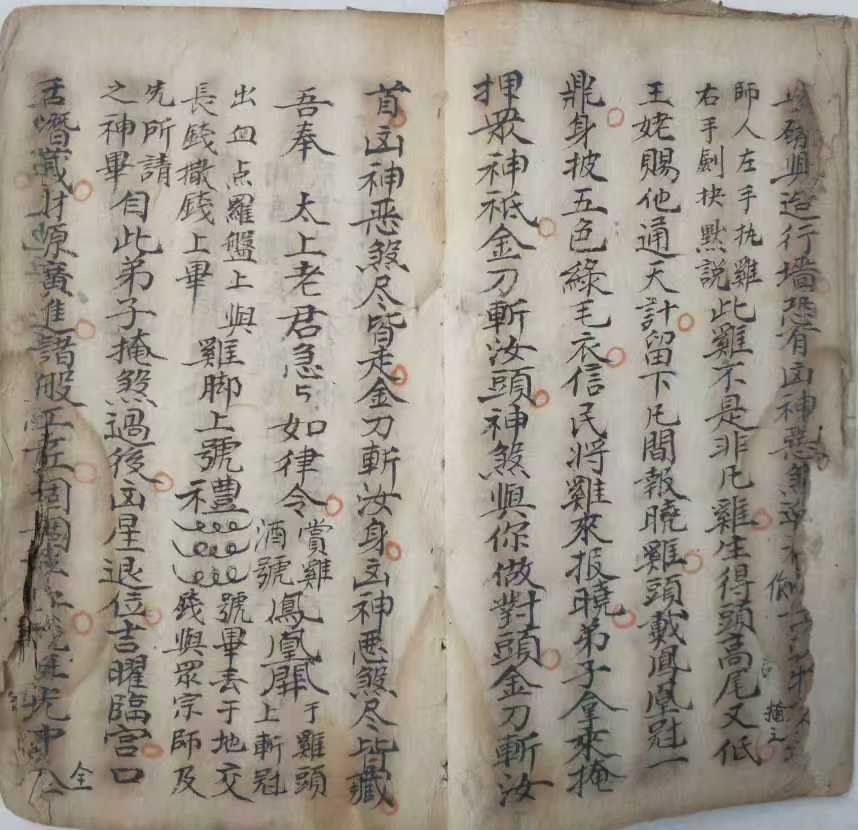 行墙恐有凶神惡煞
師人左手执雞
右手劍抉點説
此雞不是非凡雞生得頭高尾又低
王姥賜他通天計留下凡間報曉雞頭戴鳳凰冠一
鼎身披五色綠毛衣信民將雞來报曉弟子拿來掩
押眾神祗金刀斬汝頭神煞與你做對頭金刀斬汝
首凶神惡煞尽皆走金刀斬汝身凶神惡煞尽皆藏
吾奉 太上老君急急如律令
賞雞
酒號
鳳凰開
于雞頭
上斬冠
出血点羅盤上與
長錢撒錢上畢
雞脚上號禮
號畢丢于地交
錢與眾宗師及
先所請
之神畢
自此弟子掩煞過後凶星退位吉曜臨宮口
舌潛藏財源廣進諸般
全